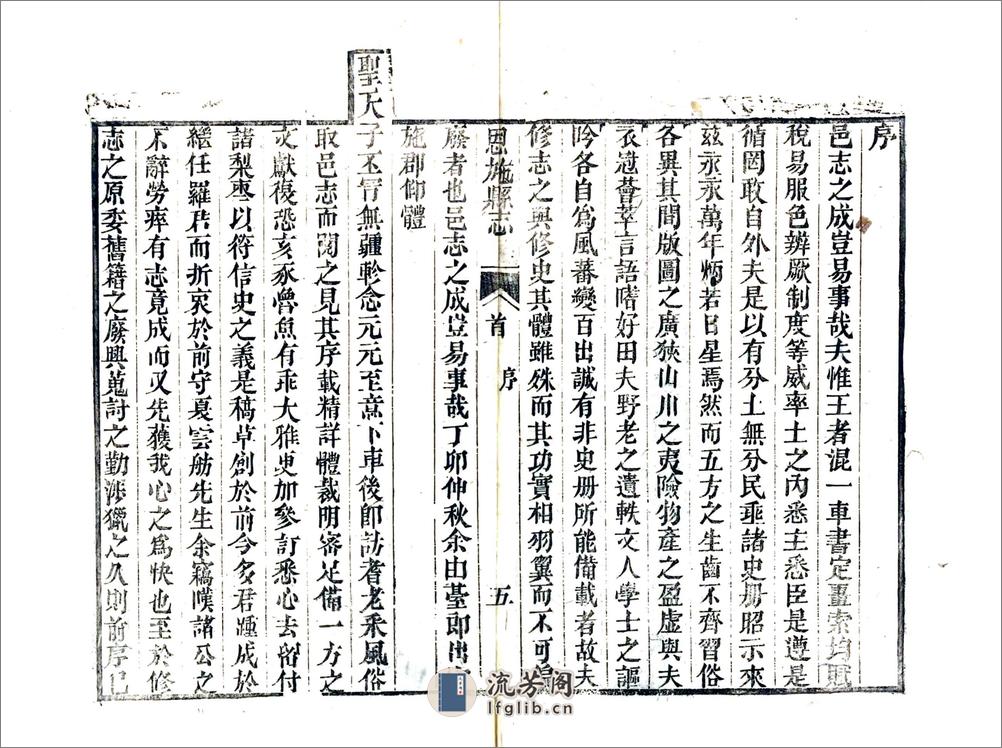 序
邑志之成豈易事哉夫惟王者混一車書定畺索均賦
稅易服色辨厥制度等威率土之內悉主悉臣是遵是
循罔敢自外夫是以有分土無分民垂諸史册昭示來
茲永永萬年炳若日星焉然而五方之生齒不齊習俗
各異其間版圖之廣狹山川之夷險物產之盈虛與夫
衣冠薈萃言語嗜好田夫野老之遺軼文人學士之謳
吟各自為風蕃變百出誠有非史册所能備載者故夫
修志之與修史其體雖殊而其功實相羽翼而不可
恩施縣志
首
序
五
廢者也邑志之成豈易事哉丁卯仲秋余由臺郎出
施郡仰體
聖天子丕冒無疆軫念元元至意下車後卽訪耆老釆風俗
取邑志而閱之見其序載精詳體裁明審足備一方之
文獻復恐亥豕魯魚有乖大雅更加參訂悉心去畱付
諸梨棗以符信史之義是稿草創於前令多君踵成於
繼任羅君而折衷於前守夏雲舫先生余竊嘆諸公之
不辭勞瘁有志竟成而又先獲我心之為快也至於修
志之原委舊籍之廢興蒐討之勤涉獵之久則前序已
流芳阁
lfglib.cn